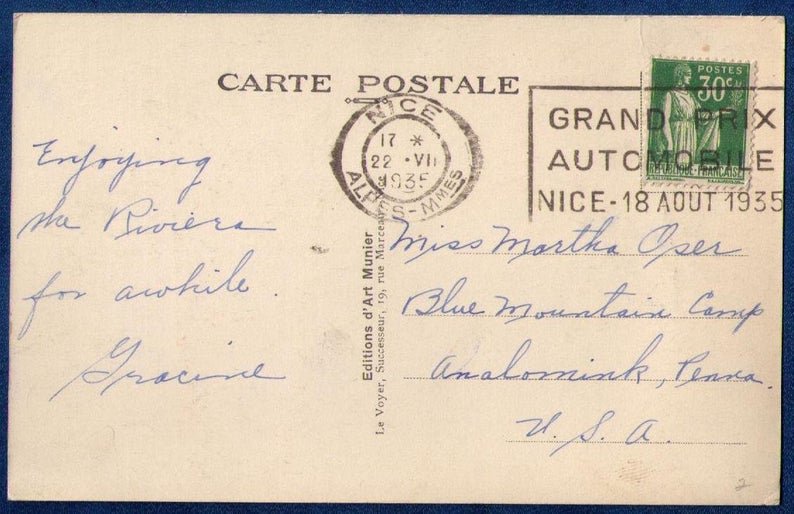 CARTE POSTALE
POSTES
30c
REPUBLIQUE-FRANÇAISE
NICE
17 *
22 · VII
1935
ALPES-MMES
GRAND PRIX
AUTOMOBILE
NICE - 18 AOUT 1935
Enjoying
the Riviera
for awhile.
Editions d'Art Munier
Le Voyer, Successeur, 19, rue
Miss Martha Oser
Blue Mountain Camp
Analomink, Penna.
U. S. A.
2